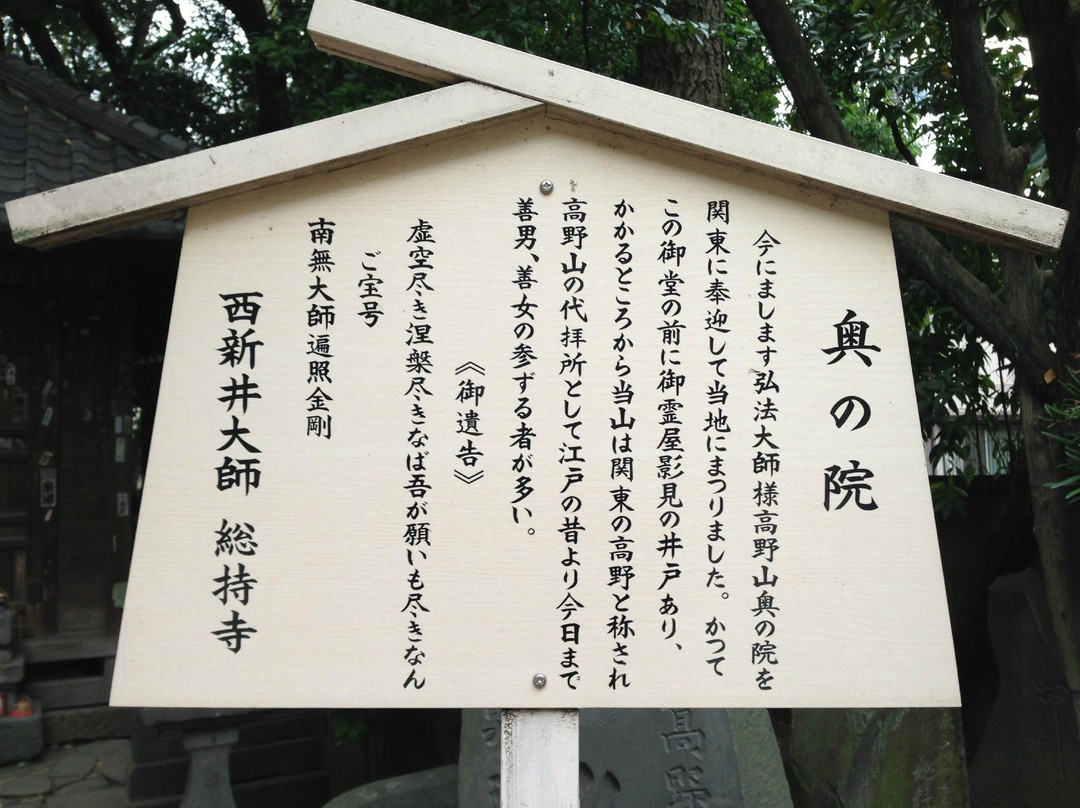 奥の院
今にまします弘法大師様高野山奥の院を
関東に奉迎して当地にまつりました。かつて
この御堂の前に御霊屋影見の井戸あり、
かかるところから当山は関東の高野と称され
高野山の代拝所として江戸の昔より今日まで
善男、善女の参ずる者が多い。
《御遺告》
虚空尽き涅槃尽きなば吾が願いも尽きなん
ご宝号
南無大師遍照金剛
西新井大師 総持寺
高野